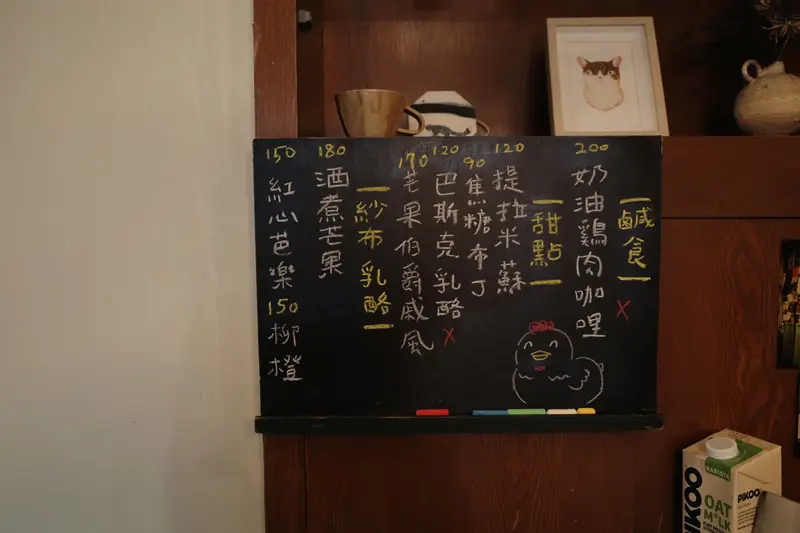 鹹食
200 奶油雞肉咖哩 X
甜點
120 提拉米蘇
90 焦糖布丁
120 巴斯克乳酪 X
170 芒果伯爵戚風
紗布乳酪
180 酒煮芒果
150 紅心芭樂
150 柳橙
PIKOO
BARISTA
OAT
M*LK
PIKOO